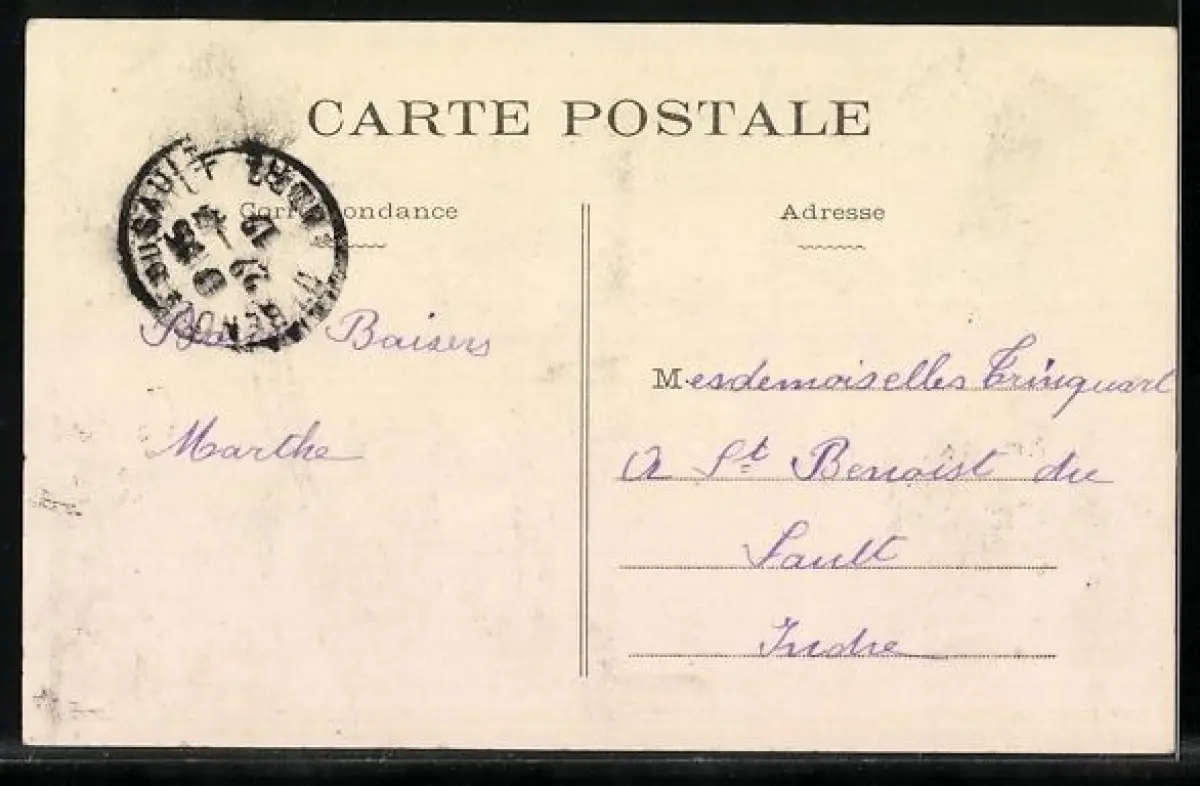 CARTE POSTALE
Correspondance
Adresse
Baisers
Marthe
Mesdemoiselles Trinquart
A St Benoist du
Sault
Indre